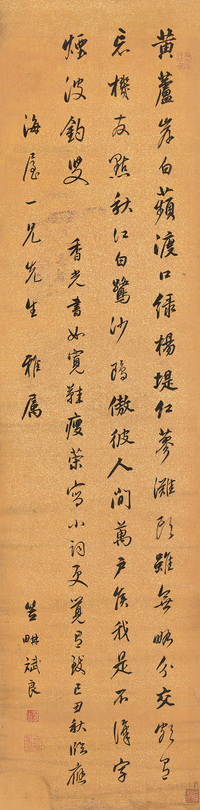 黃蘆岸白蘋渡口綠楊堤紅蓼灘頭雖無略分交頗有
忘機友點秋江白鷺沙鷗傲彼人間萬戶侯我是不識字
煙波釣叟 香光書如寬鞋瘦寫小詞更覺有致己丑秋臨應
海屋一兄先生 雅屬
笠畊斌良